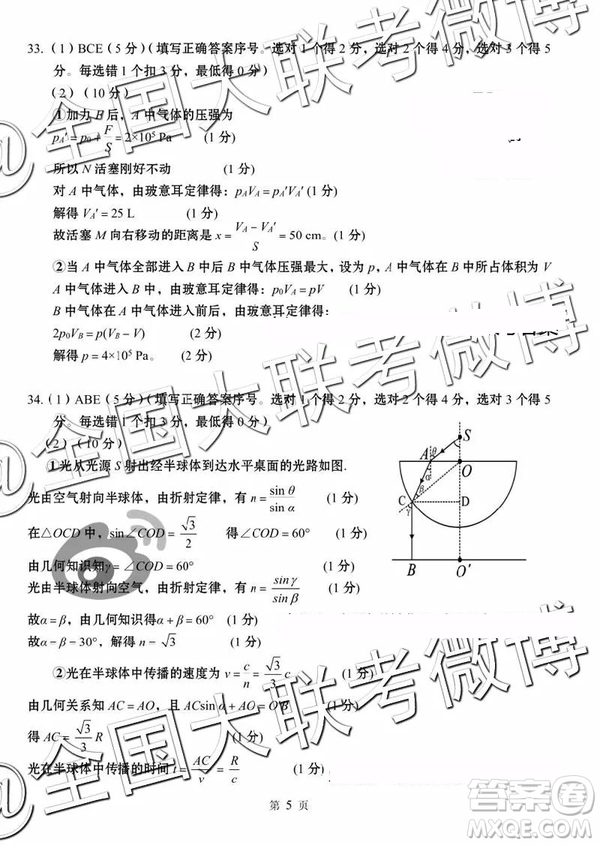 33.（1）BCE（5 分）（填写正确答案序号。选对 1 个得 2 分，选对 2 个得 4 分，选对 3 个得 5
分。每选错 1 个扣 3 分，最低得 0 分）
（2）（10 分）
①加力 B 后，A 中气体的压强为
pA′=p0+F/S=2×10⁵ Pa （1 分）
所以 N 活塞刚好不动 （1 分）
对 A 中气体，由玻意耳定律得：pAVA=pA′VA′（1 分）
解得 VA′=25 L （1 分）
故活塞 M 向右移动的距离是 x=(VA−VA′)/S=50 cm。（1 分）
②当 A 中气体全部进入 B 中后 B 中气体压强最大，设为 p，A 中气体在 B 中所占体积为 V
A 中气体，由玻意耳定律得：p0VA=pV （1 分）
B 中气体，在 A 中气体进入前后，由玻意耳定律得：
2p0VB=p(VB−V) （2 分）
解得 p=4×10⁵ Pa。 （2 分）
34.（1）ABE（5 分）（填写正确答案序号。选对 1 个得 2 分，选对 2 个得 4 分，选对 3 个得 5
分。每选错 1 个扣 3 分，最低得 0 分）
（2）（10 分）
①光从光源 S 射出经半球体到达水平桌面的光路如图.
光由空气射向半球体，由折射定律，有 n=sin θ/sin α（1 分）
在△OCD 中，sin∠COD=√3/2 得∠COD=60° （1 分）
由几何知识知γ=∠COD=60° （1 分）
光由半球体射向空气，由折射定律，有 n=sinγ/sinβ （1 分）
故α=β，由几何知识得α+β=60° （1 分）
故α=β=30°，解得 n=√3 （1 分）
②光在半球体中传播的速度为 v=c/n=√3/3c （1 分）
由几何关系知 AC=AO，且 ACsin α+AO=O′B （1 分）
得 AC=√3/3 R （1 分）
光在半球体中传播的时间 t=AC/v=R/c （1 分）
S
θ
A
α
O
β
C
D
γ
B
O′
第 5 页
@全国大联考微博
@全国大联考微博
@全国大联考微博
答案圈
MXQE.COM